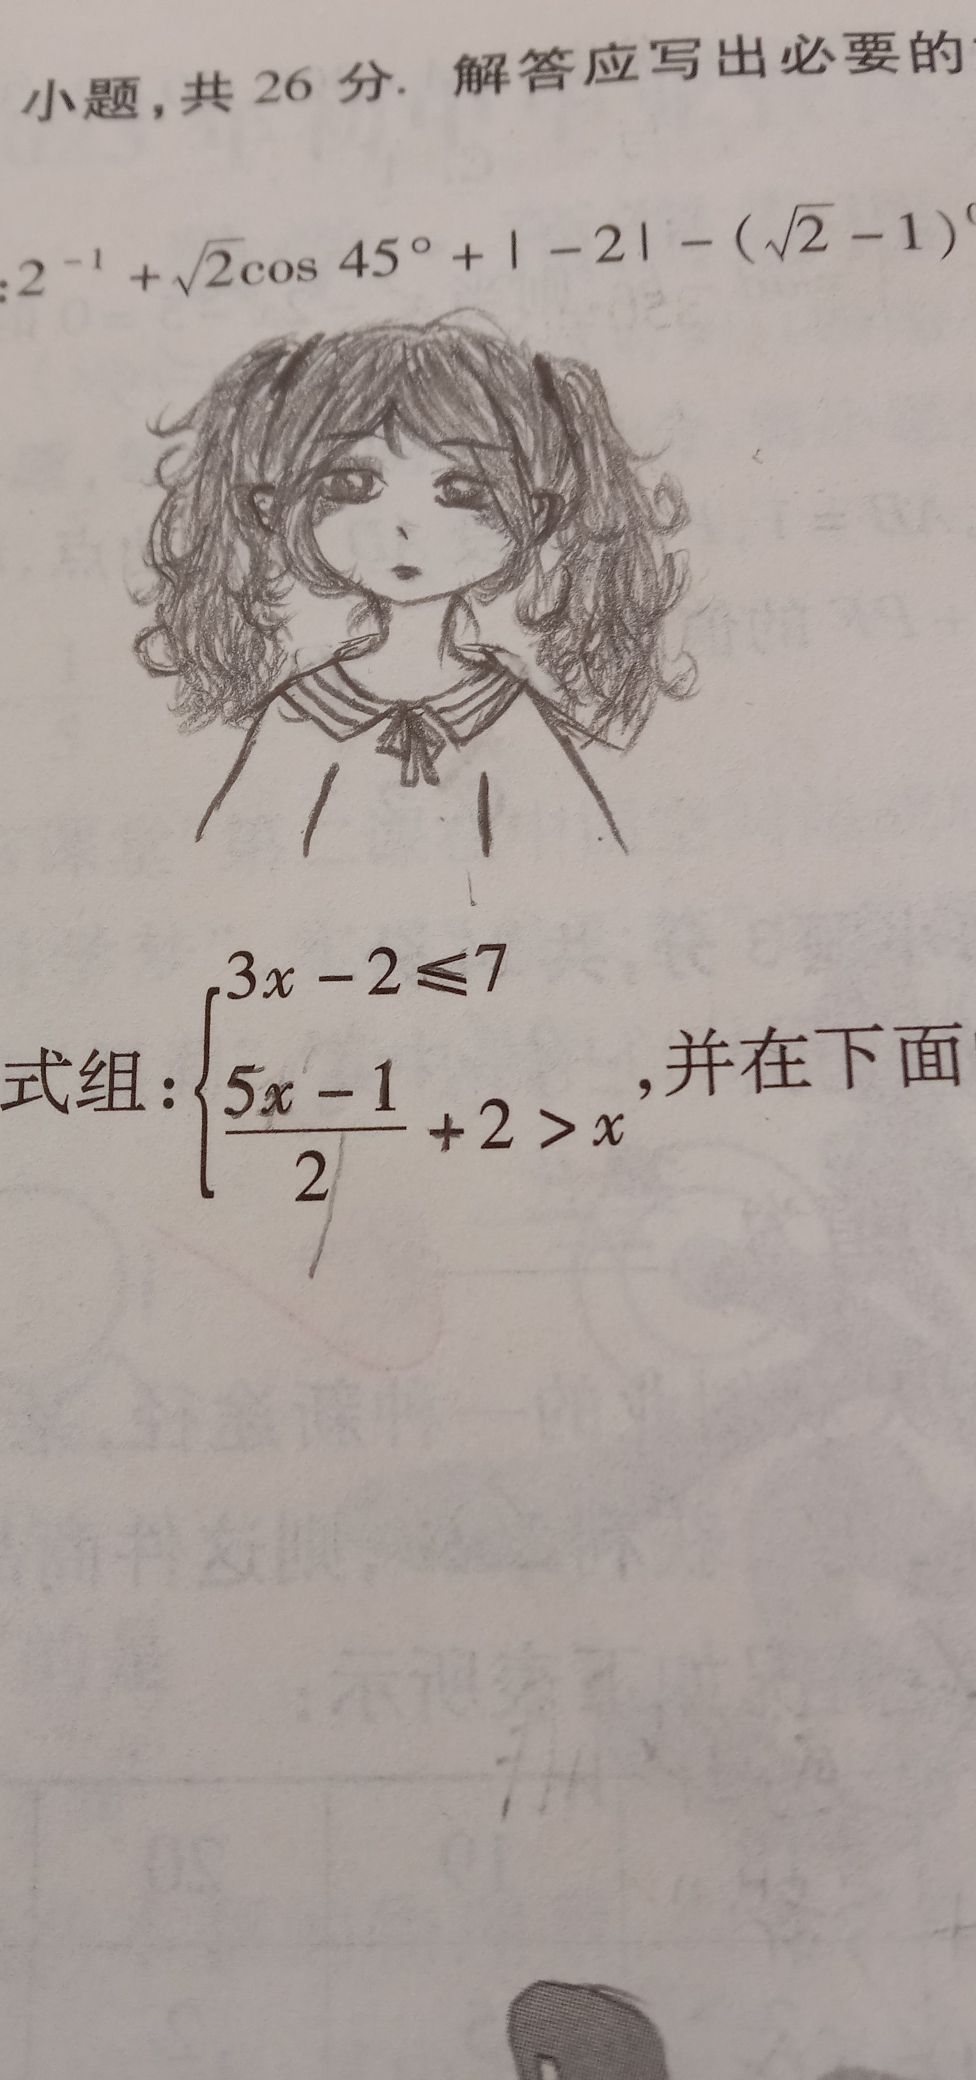 小题,共 26 分. 解答应写出必要的
:2⁻¹ + √2cos 45° + | - 2 | - (√2 - 1)⁰
式组:{3x - 2 ⩽ 7
(5x - 1)/2 + 2 > x ,并在下面